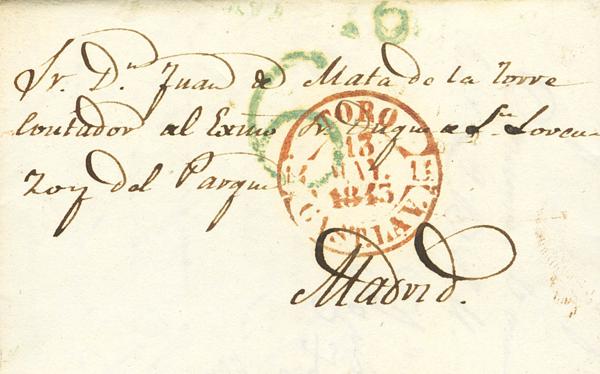 Sr. Dn Juan de Mata de la Torre
Contador al Exmo Sr. Duque de Sn Loren
zo y del Parque
Madrid.
TORO
13
MAY.
1843
CAST. LA V.
6